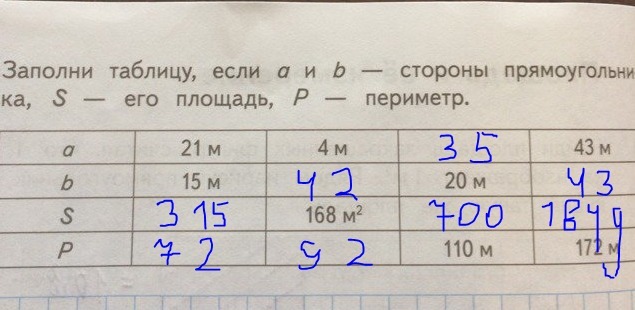 Заполни таблицу, если a и b — стороны прямоугольни
ка, S — его площадь, P — периметр.
a 21 м 4 м 35 43 м
b 15 м 42 20 м 43
S 315 168 м² 700 1849
P 72 92 110 м 172 м